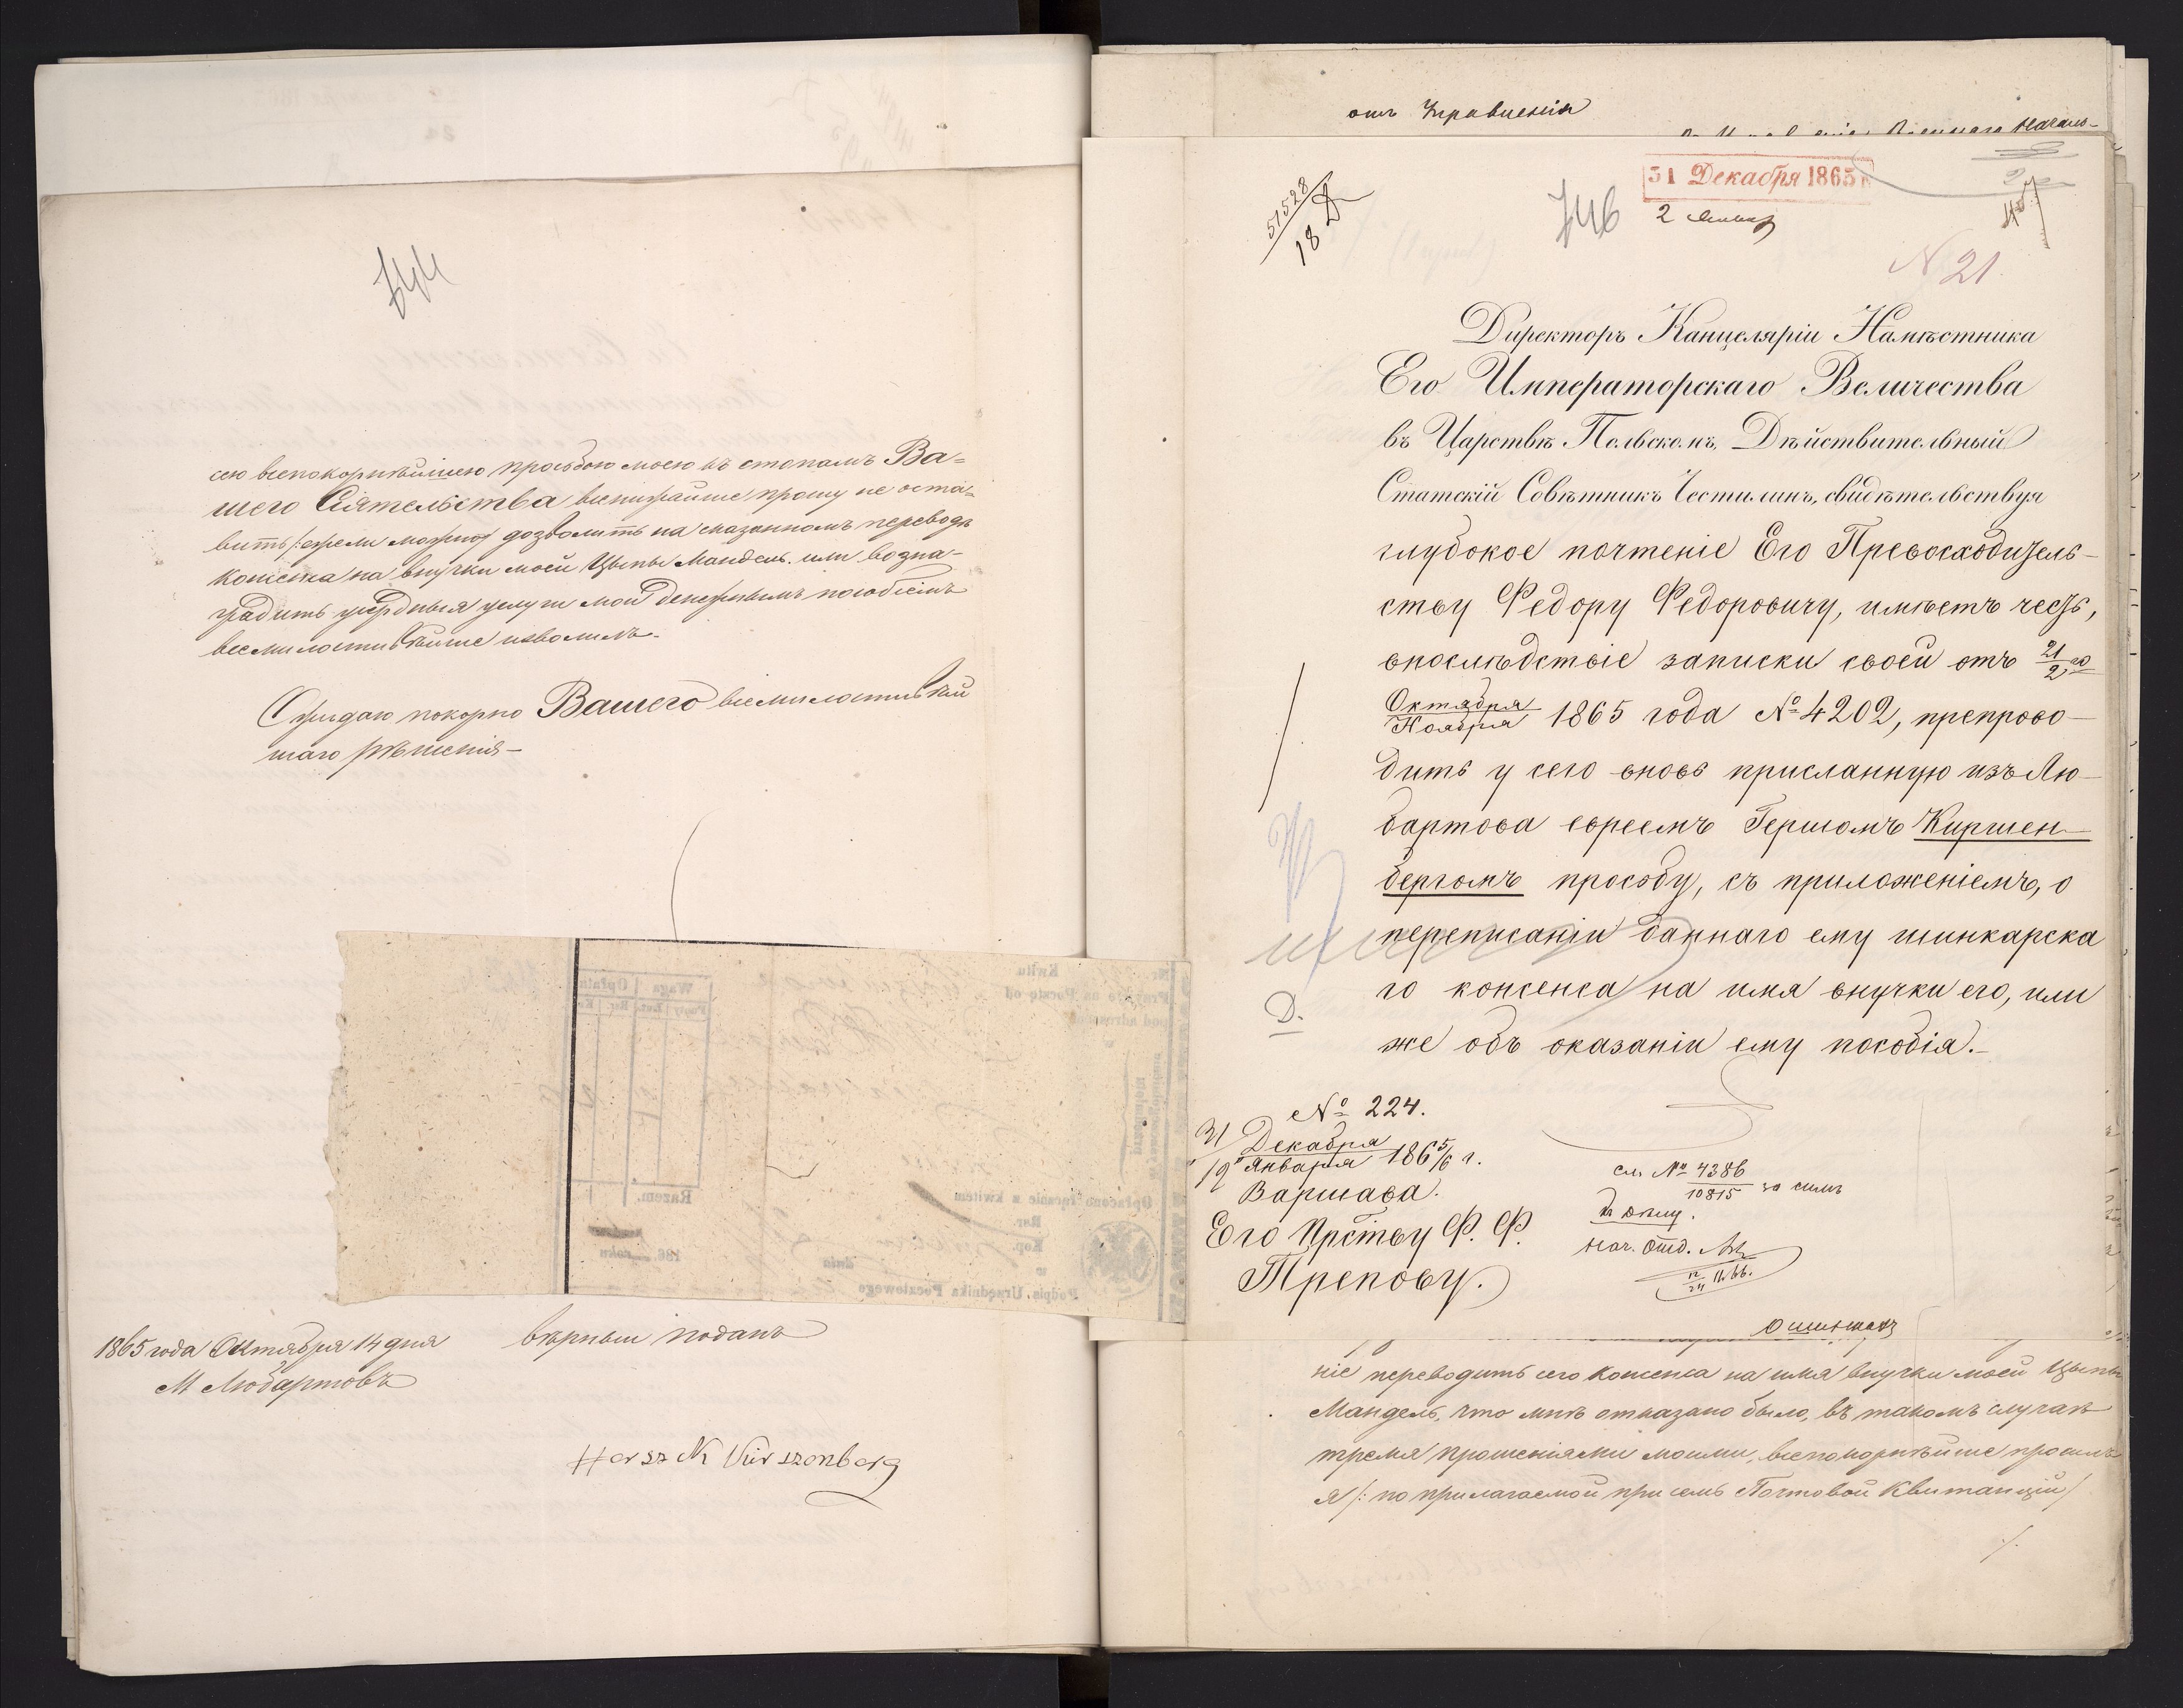 744
сею всепокорнѣйшею просьбою моею къ стопамъ Ва=
шего Сіятельства всенижайше прошу не оста=
вить /:ежели можно:/ дозволить на сказанномъ переводѣ
консенса на внучки моей Цыпы Мандель. или возна-
градить усердныя услуги мои денежнымъ пособіемъ
всемилостивѣйше изволилъ.
Ожидаю покорно Вашего всемилостивѣй
шаго рѣшенія-
Kwitu
Waga
Opłata
Razem.
186 roku
dnia
Rsr.
Kop.
Podpis Urzędnika Pocztowego
1865 года Октября 14 дня
вѣрный поданъ
М Любартовъ
Herszk Kirszenberg
отъ Управленія
Военнаго Началь-
31 Декабря 1865
51528
18 Д
746
N 21
Директоръ Канцеляріи Намѣстника
Его Императорскаго Величества
въ Царствѣ Польскомъ, Дѣйствительный
Статскій Совѣтникъ Честилинъ, свидѣтельствуя
глубокое почтеніе Его Превосходитель-
ству Федору Федоровичу, имѣетъ честь,
впослѣдствіе записки своей отъ 21/2го
Октября/Ноября 1865 года № 4202, препрово-
дить у сего вновь присланную изъ Лю-
бартова евреемъ Гершомъ Киршен-
бергомъ просьбу, съ приложеніемъ, о
переписаніи даннаго ему шинкарска
го консенса на имя внучки его, или
же объ оказаніи ему пособія.-
Д.
№ 224.
31 Декабря/12 Января 1865/6 г.
Варшава.
Его Прству Ф. Ф.
Трепову.
см № 4386/10815 за симъ
Нач. Отд.
ніе переводить сего консенса на имя внучки моей Цыпы
Мандель, что мнѣ отказано было, въ такомъ случаѣ
тремя прошеніями моими, всепокорнѣйше просилъ
я /: по прилагаемой при семъ Почтовой Квитанціи /